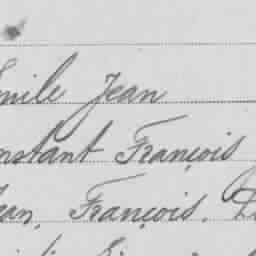 mile Jean
nstant François
ean, François.